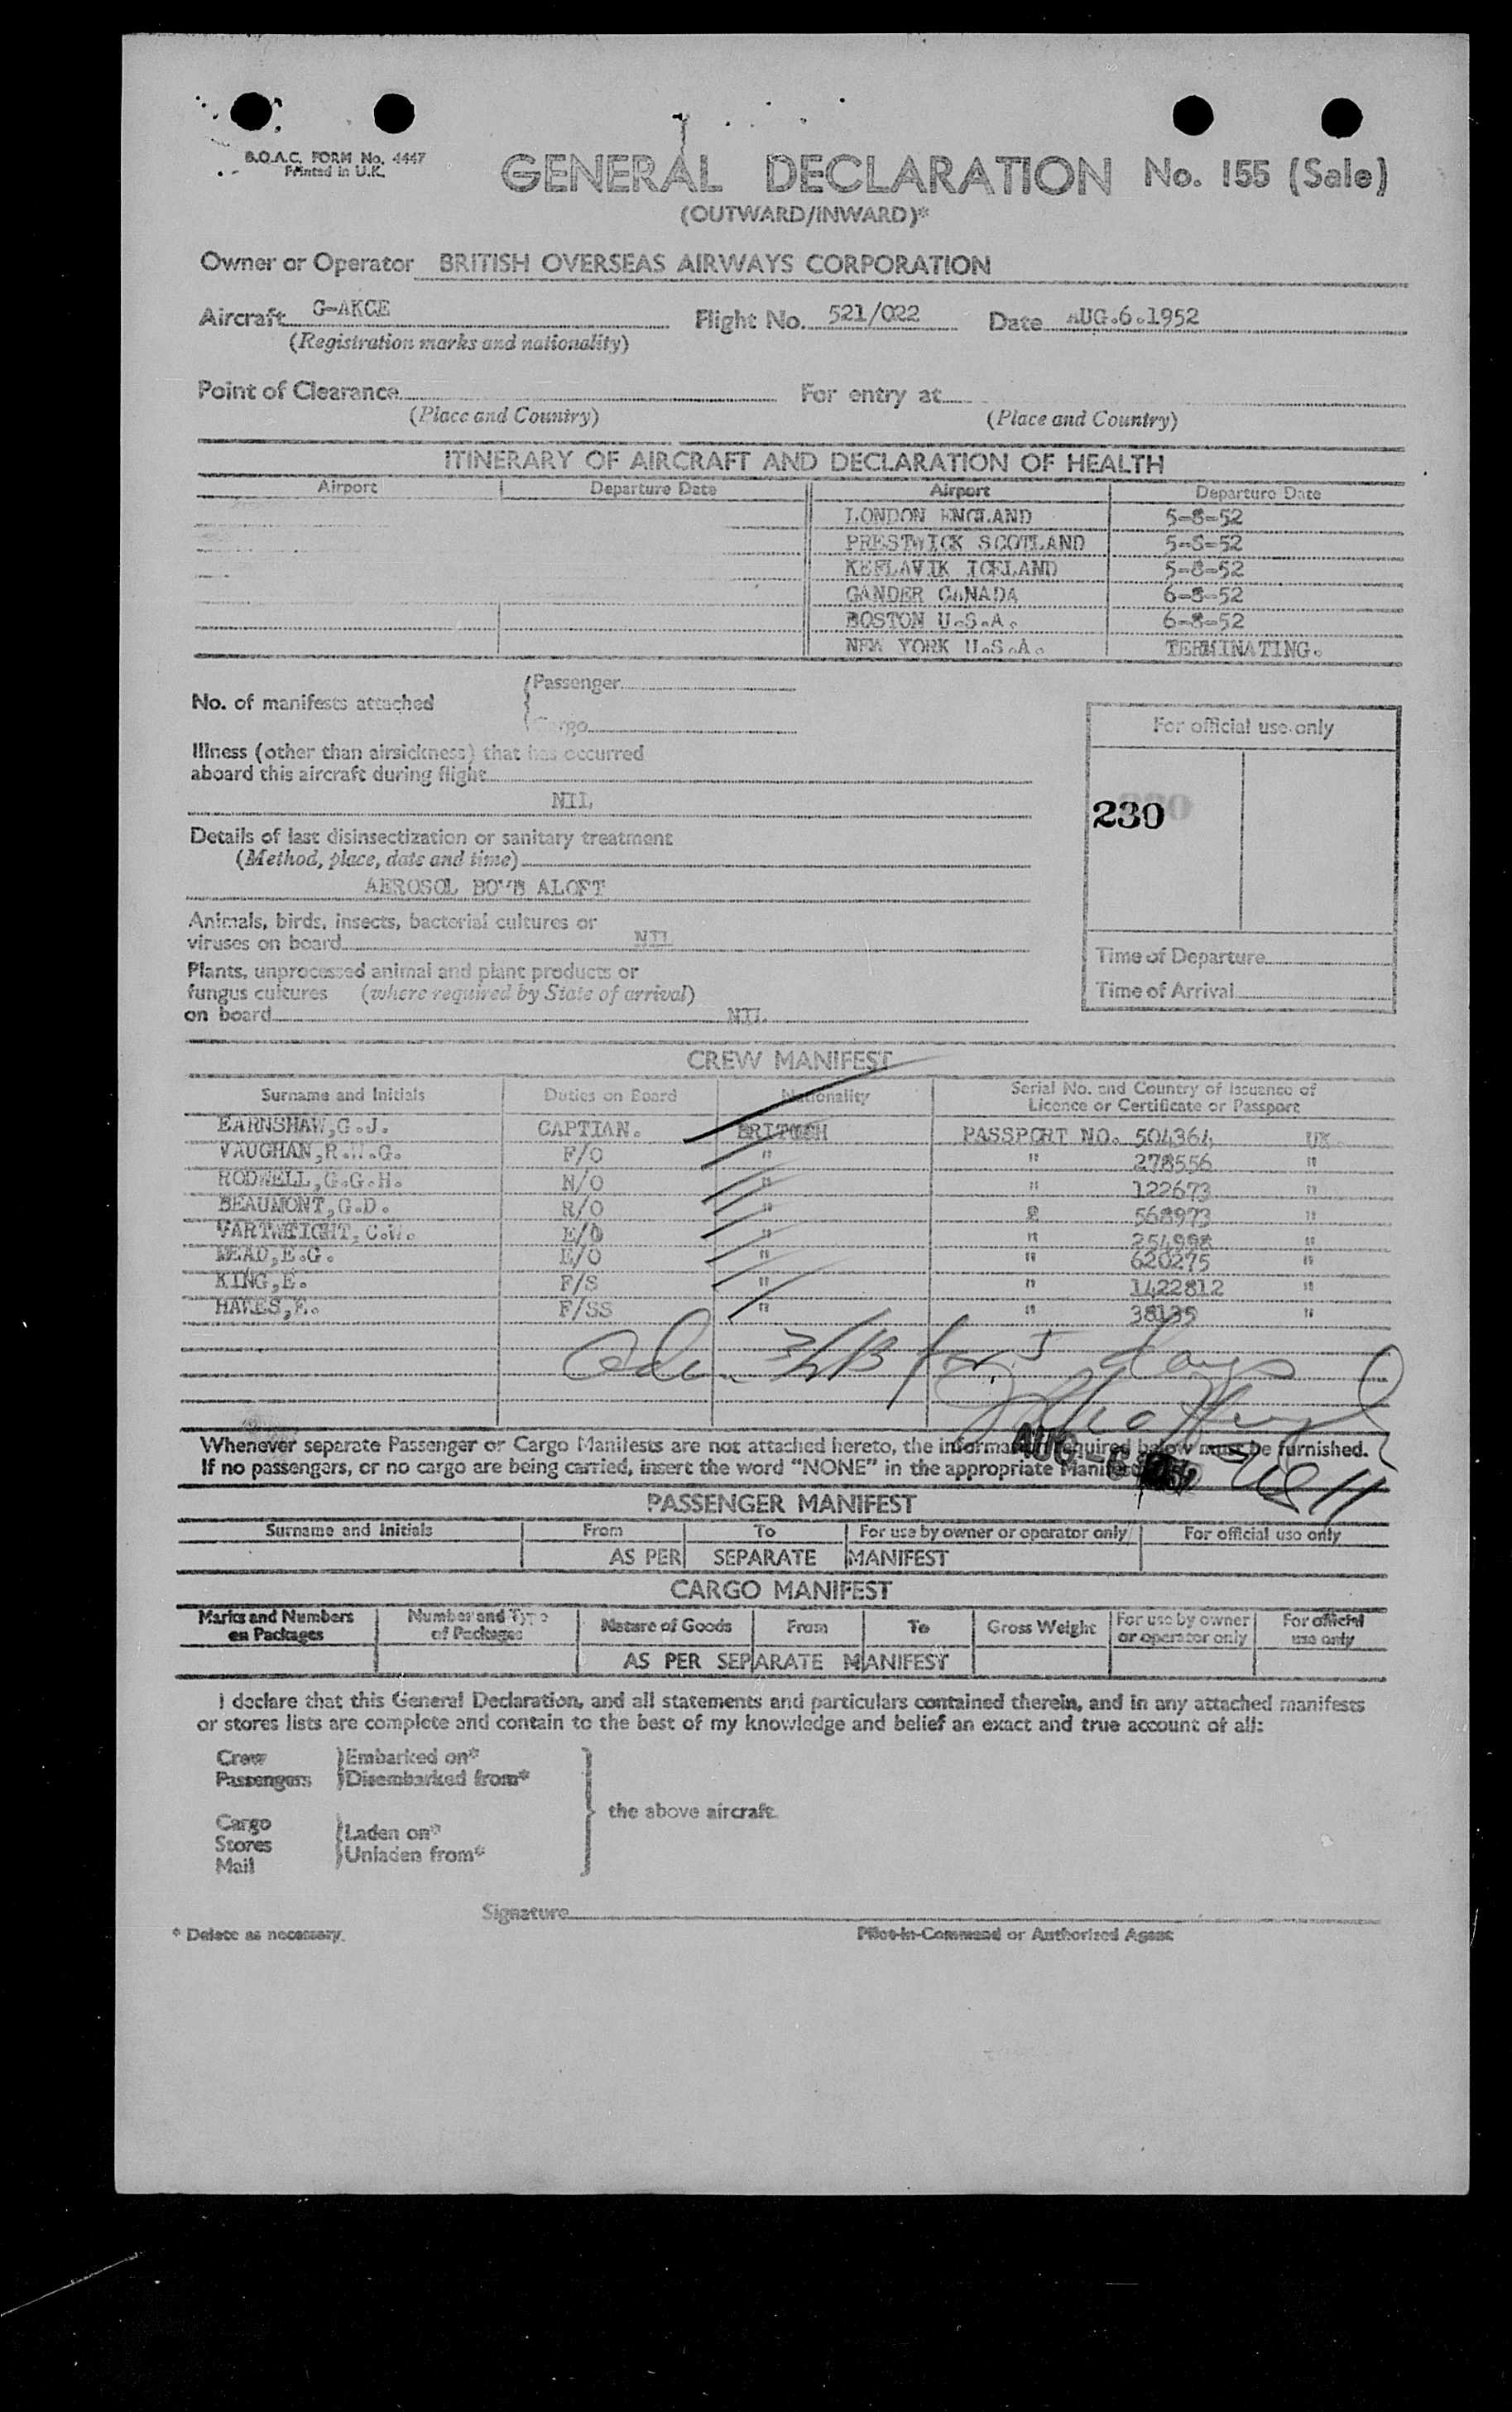 B.O.A.C. FORM No. 4447
Printed in U.K.
GENERAL DECLARATION No. 155 (Sale)
(OUTWARD/INWARD)*
Owner or Operator BRITISH OVERSEAS AIRWAYS CORPORATION
Aircraft G-AKCE Flight No. 521/022 Date AUG.6.1952
(Registration marks and nationality)
Point of Clearance For entry at
(Place and Country) (Place and Country)
ITINERARY OF AIRCRAFT AND DECLARATION OF HEALTH
Airport Departure Date Airport Departure Date
LONDON ENGLAND 5-8-52
PRESTWICK SCOTLAND 5-8-52
KEFLAVIK ICELAND 5-8-52
GANDER CANADA 6-8-52
BOSTON U.S.A. 6-8-52
NEW YORK U.S.A. TERMINATING.
No. of manifests attached
Passenger
Cargo
For official use only
Illness (other than airsickness) that has occurred
aboard this aircraft during flight
NIL
230
Details of last disinsectization or sanitary treatment
(Method, place, date and time)
AEROSOL BOMB ALOFT
Animals, birds, insects, bacterial cultures or
viruses on board NIL
Time of Departure
Plants, unprocessed animal and plant products or
fungus cultures (where required by State of arrival)
Time of Arrival
on board NIL
CREW MANIFEST
Surname and Initials Duties on Board Nationality Serial No. and Country of Issuance of
Licence or Certificate or Passport
EARNSHAW,G.J. CAPTIAN. BRITISH PASSPORT NO. 504364 UK.
VAUGHAN,R.W.G. F/O " " 278556 "
RODWELL,G.G.H. N/O " " 122673 "
BEAUMONT,G.D. R/O " 568973 "
E/O " " 254998 "
MEAD,E.G. E/O " " 620275 "
KING,E. F/S " " 1422812 "
F/SS " " 38135 "
for 5 days
Whenever separate Passenger or Cargo Manifests are not attached hereto, the information required below must be furnished.
If no passengers, or no cargo are being carried, insert the word “NONE” in the appropriate Manifest
AUG 6
PASSENGER MANIFEST
Surname and Initials From To For use by owner or operator only For official use only
AS PER SEPARATE MANIFEST
CARGO MANIFEST
Marks and Numbers on Packages Number and Type of Packages Nature of Goods From To Gross Weight For use by owner or operator only For official use only
AS PER SEPARATE MANIFEST
I declare that this General Declaration, and all statements and particulars contained therein, and in any attached manifests
or stores lists are complete and contain to the best of my knowledge and belief an exact and true account of all:
Crew Embarked on*
Passengers Disembarked from*
the above aircraft.
Cargo
Stores
Mail
Laden on*
Unladen from*
Signature
* Delete as necessary. Pilot-in-Command or Authorised Agent